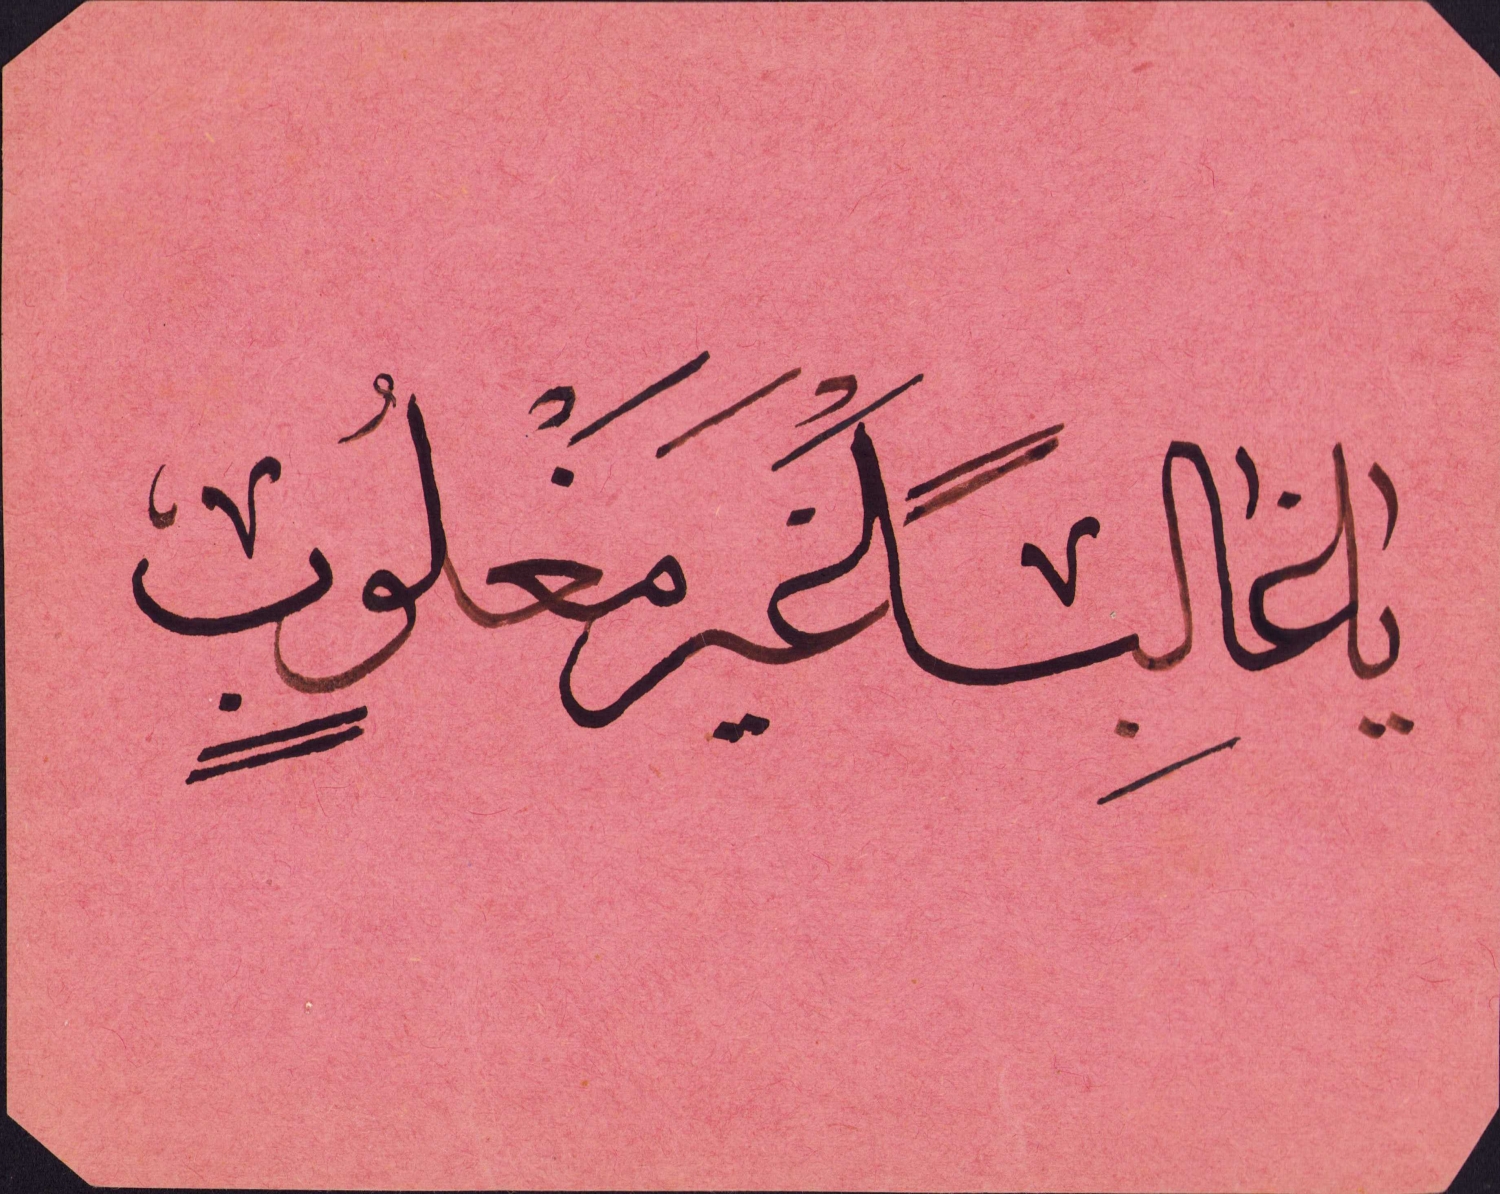 يا غالِبًا غَيْرَ مَغْلُوبٍ